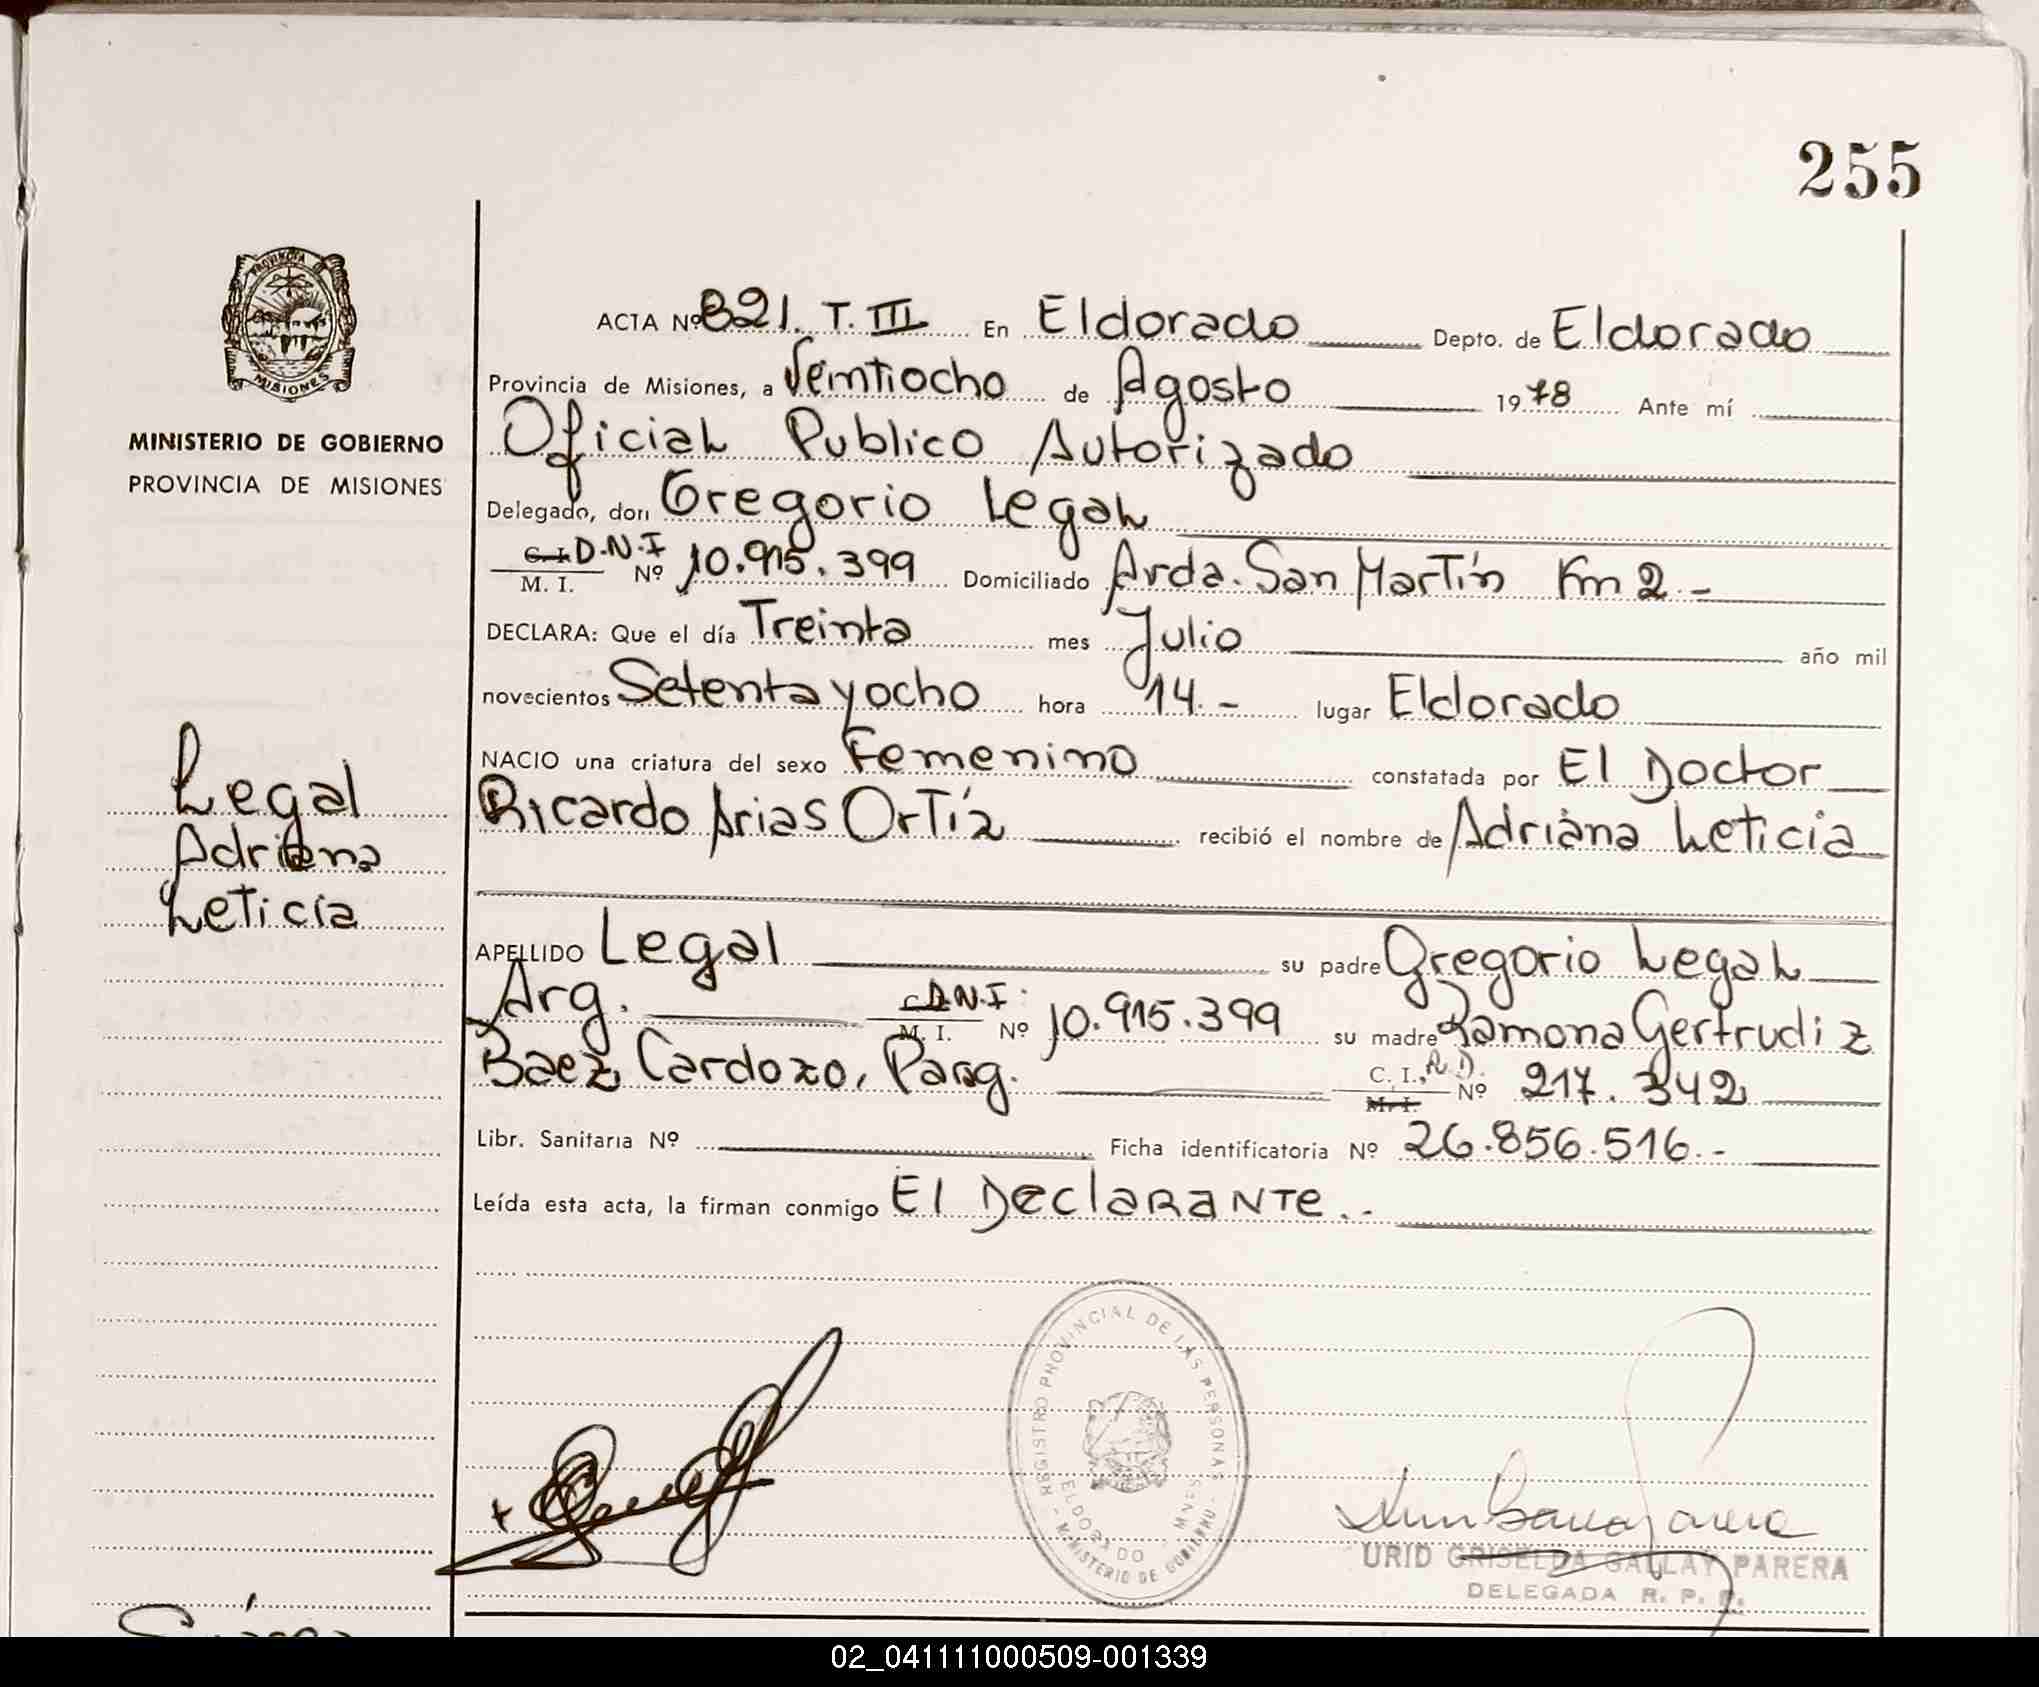 255
ACTA Nº 821. T. III En Eldorado Depto. de Eldorado
Provincia de Misiones, a Veintiocho de Agosto 1978 Ante mí
MINISTERIO DE GOBIERNO
PROVINCIA DE MISIONES
Oficial Publico Autorizado
Delegado, don Gregorio Legal
C. I. D.N.I
M. I. Nº 10.915.399 Domiciliado Avda. San Martín Km 2.-
DECLARA: Que el día Treinta mes Julio año mil
novecientos Setenta y ocho hora 14.- lugar Eldorado
NACIO una criatura del sexo Femenino constatada por El Doctor
Ricardo Arias Ortíz recibió el nombre de Adriana Leticia
Legal
Adriana
Leticia
APELLIDO Legal su padre Gregorio Legal
Arg. D.N.I.
M. I. Nº 10.915.399 su madre Ramona Gertrudiz
Baez Cardozo, Parag. C. I., R.D.
M. I. Nº 217.342
Libr. Sanitaria Nº Ficha identificatoria Nº 26.856.516.-
Leída esta acta, la firman conmigo El Declarante..
REGISTRO PROVINCIAL DE LAS PERSONAS
ELDORADO MNES.
- MINISTERIO DE GOBIERNO -
URID GRISELDA GALLAY PARERA
DELEGADA R. P. P.
02_041111000509-001339